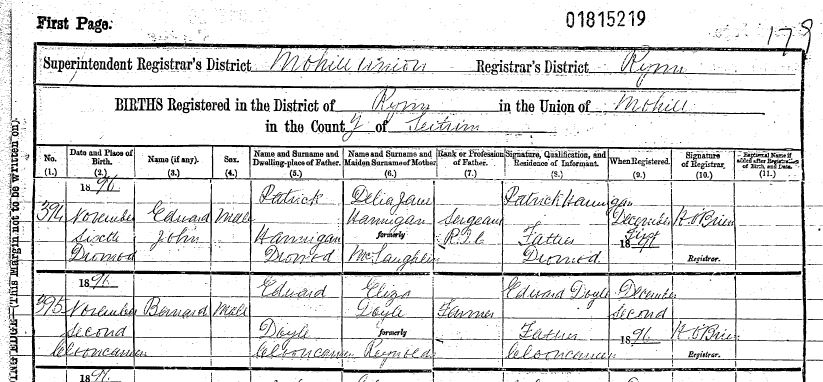 First Page.
01815219
179
Superintendent Registrar's District Mohill Union Registrar's District Rynn
BIRTHS Registered in the District of Rynn in the Union of Mohill
in the County of Leitrim
No. Date and Place of Birth. Name (if any). Sex. Name and Surname and Dwelling-place of Father. Name and Surname and Maiden Surname of Mother. Rank or Profession of Father. Signature, Qualification, and Residence of Informant. When Registered. Signature of Registrar. Baptismal Name if added after Registration of Birth, and Date.
(1.) (2.) (3.) (4.) (5.) (6.) (7.) (8.) (9.) (10.) (11.)
1896 Patrick Delia Jane Patrick Hannigan
394 November Edward Male Hannigan Sergeant December H. O'Brien
Sixth John Hannigan formerly R.I.C Father First
Dromod Dromod McLaughlin Dromod 1896 Registrar.
1896 Edward Eliza Edward Doyle December
395 November Bernard Male Doyle Farmer Second
Second Doyle formerly Father 1896 H. O'Brien
Clooncannen Clooncannen Reynolds Clooncannen Registrar.
189
ING EDGE—(This Margin not to be written on)